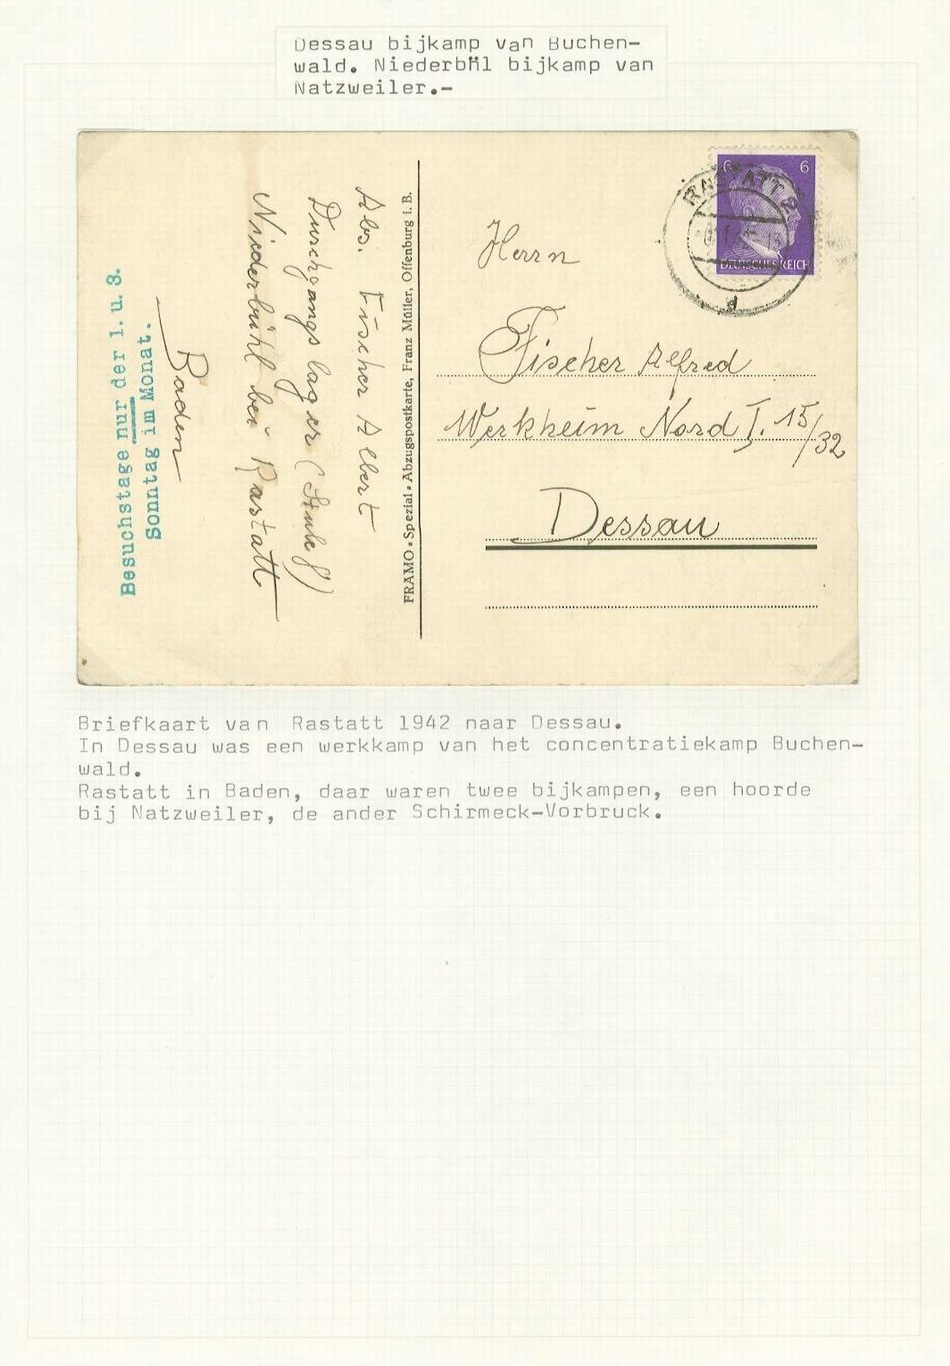 Dessau bijkamp van Buchen-
wald. Niederbhl bijkamp van
Natzweiler.-
6 6
DEUTSCHES REICH
RASTATT 2
d
Herrn
Fischer Alfred
Werkheim Nord I. 15/32
Dessau
FRAMO - Spezial - Abzugspostkarte, Franz Müller, Offenburg i. B.
Abs. Fischer Albert
Durchgangslager (Stube 8)
Niederbühl bei Rastatt
Baden
Besuchstage nur der 1. u. 3.
Sonntag im Monat.
Briefkaart van Rastatt 1942 naar Dessau.
In Dessau was een werkkamp van het concentratiekamp Buchen-
wald.
Rastatt in Baden, daar waren twee bijkampen, een hoorde
bij Natzweiler, de ander Schirmeck-Vorbruck.